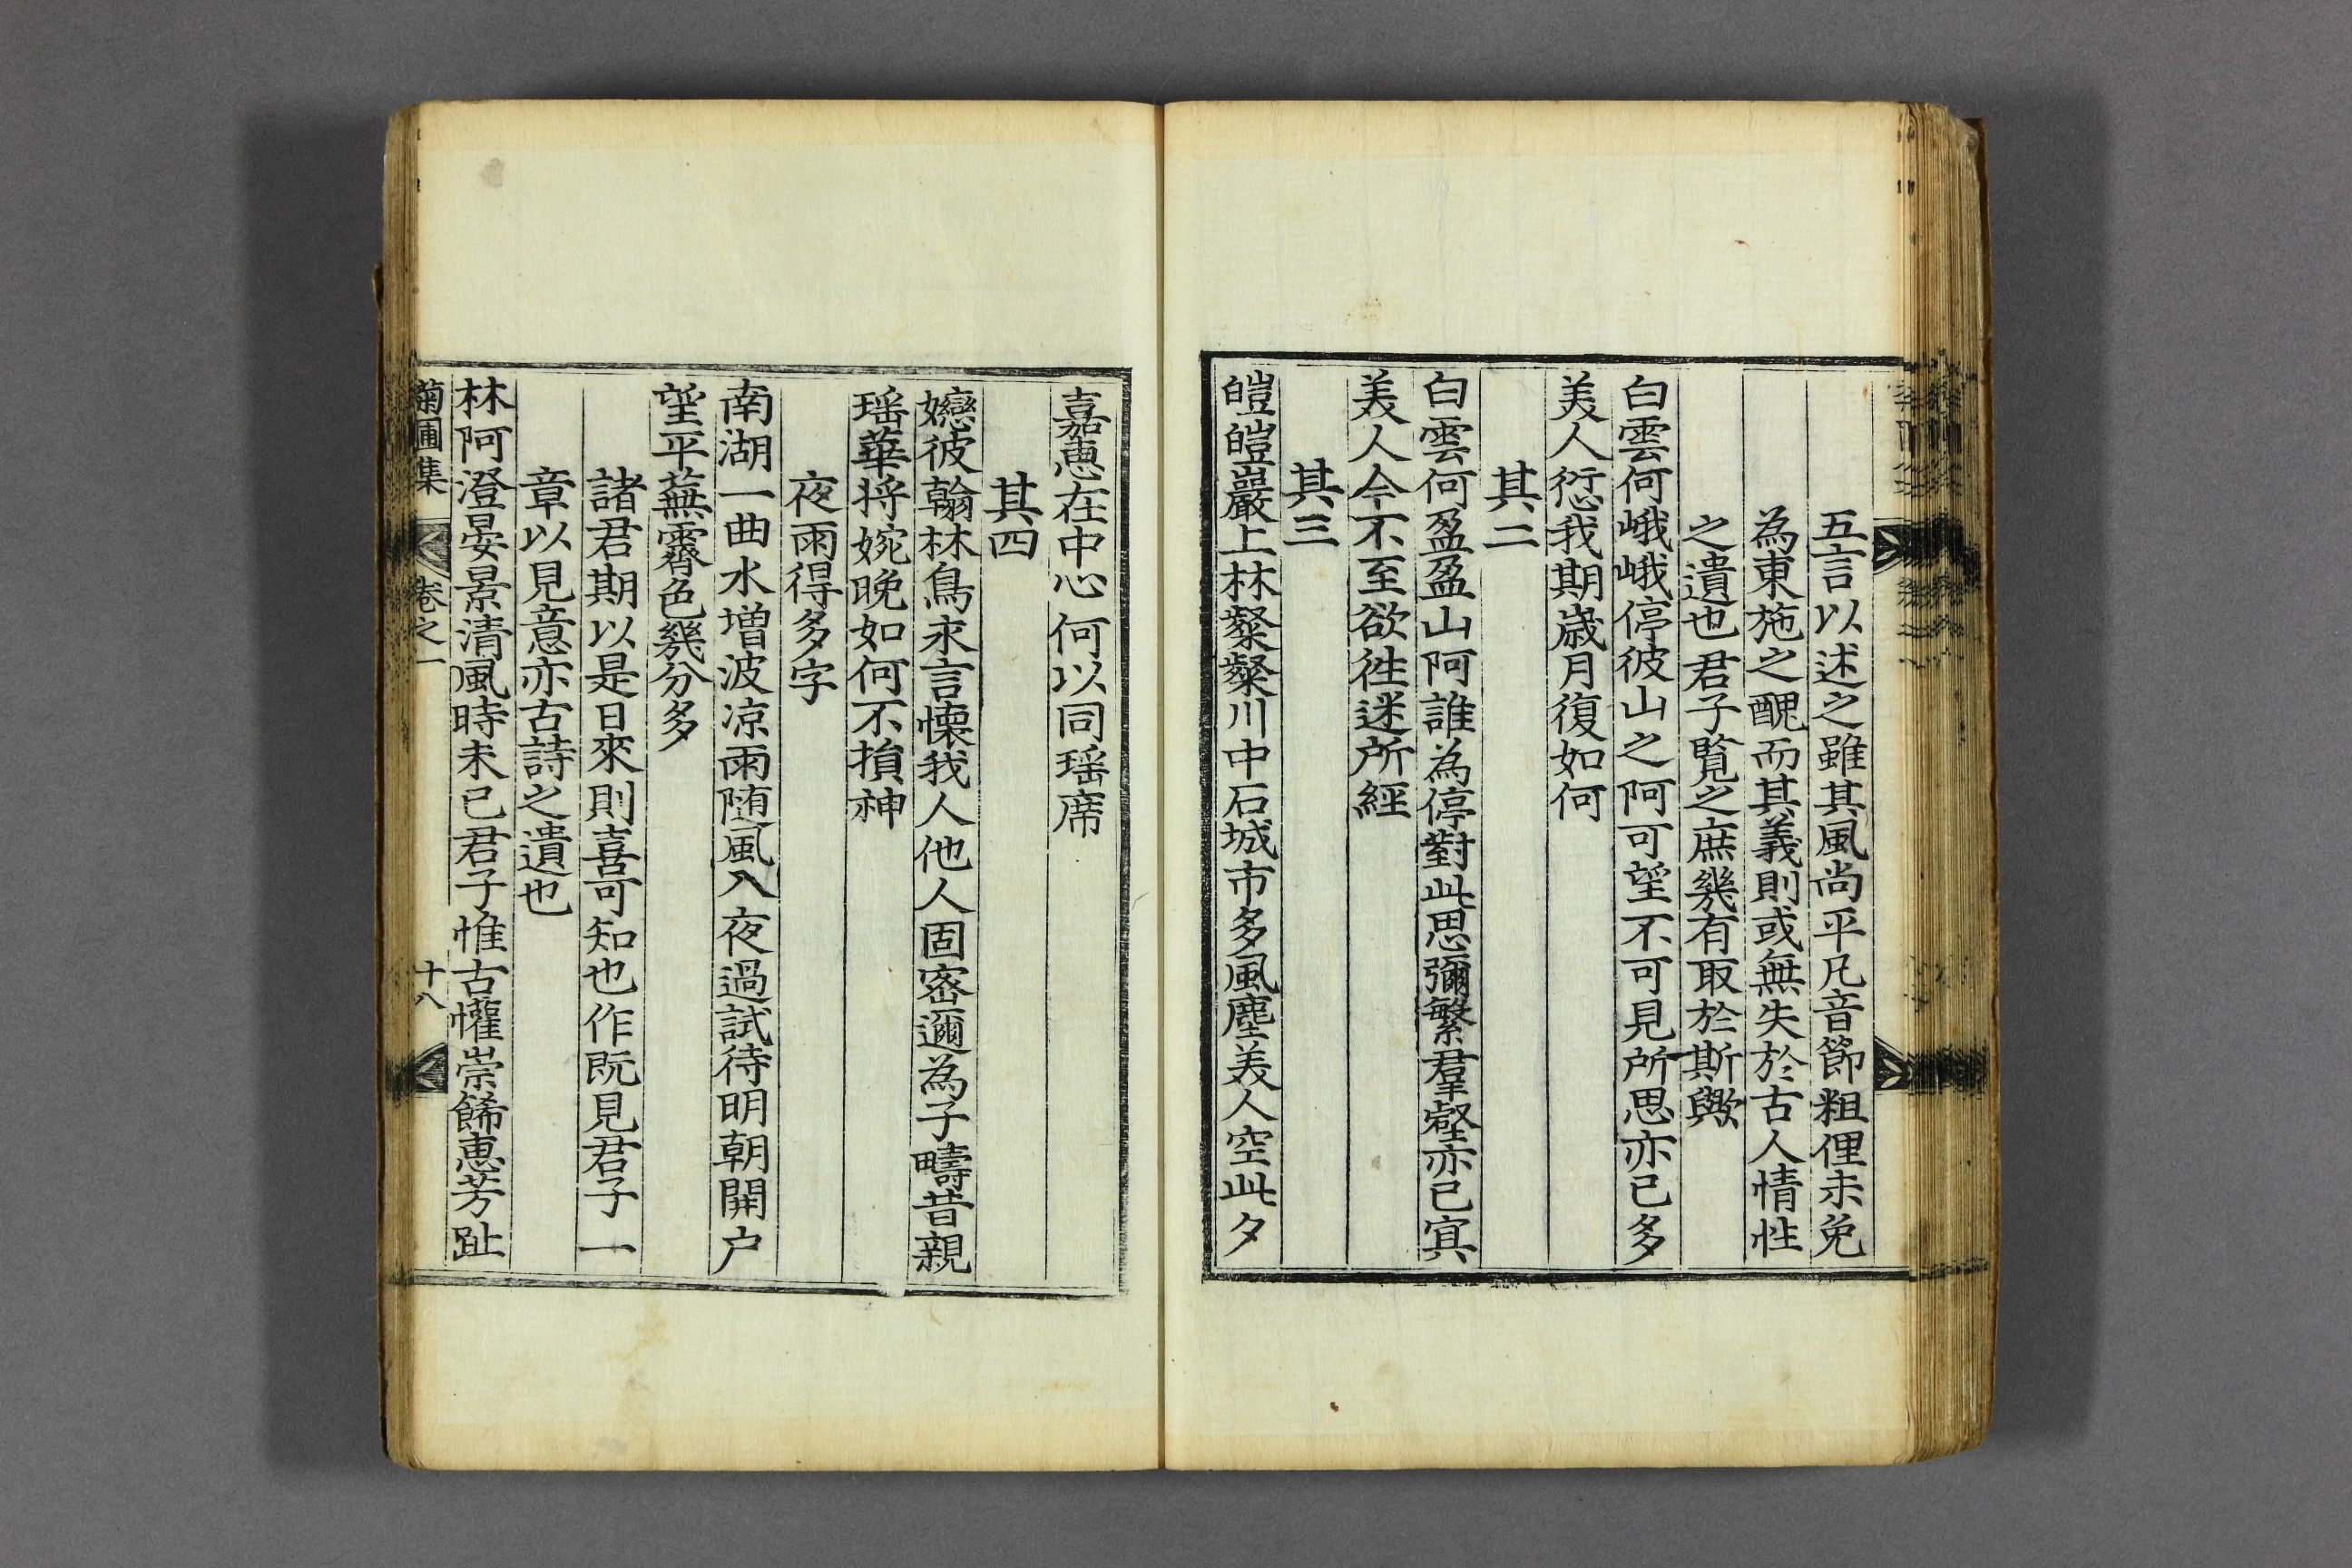 五言以述之雖其風尚平凡音節粗俚未免
為東施之醜而其義則或無失於古人情性
之遺也君子覧之庶幾有取於斯歟
白雲何峨峨停彼山之阿可望不可見所思亦已多
美人愆我期歳月復如何
其二
白雲何盈盈山阿誰為停對此思彌繁羣壑亦已㝠
美人今不至欲徃迷所經
其三
皚皚巖上林粲粲川中石城市多風塵美人空此夕
嘉惠在中心何以同瑶席
其四
戀彼翰林鳥永言懐我人他人固密邇為子疇昔親
瑶華将婉晚如何不損神
夜雨得多字
南湖一曲水増波凉雨随風入夜過試待明朝開户
望平蕪霽色幾分多
諸君期以是日來則喜可知也作既見君子一
章以見意亦古詩之遺也
林阿澄晏景清風時未已君子惟古懽崇餙惠芳趾
菊圃集 卷之一 十八